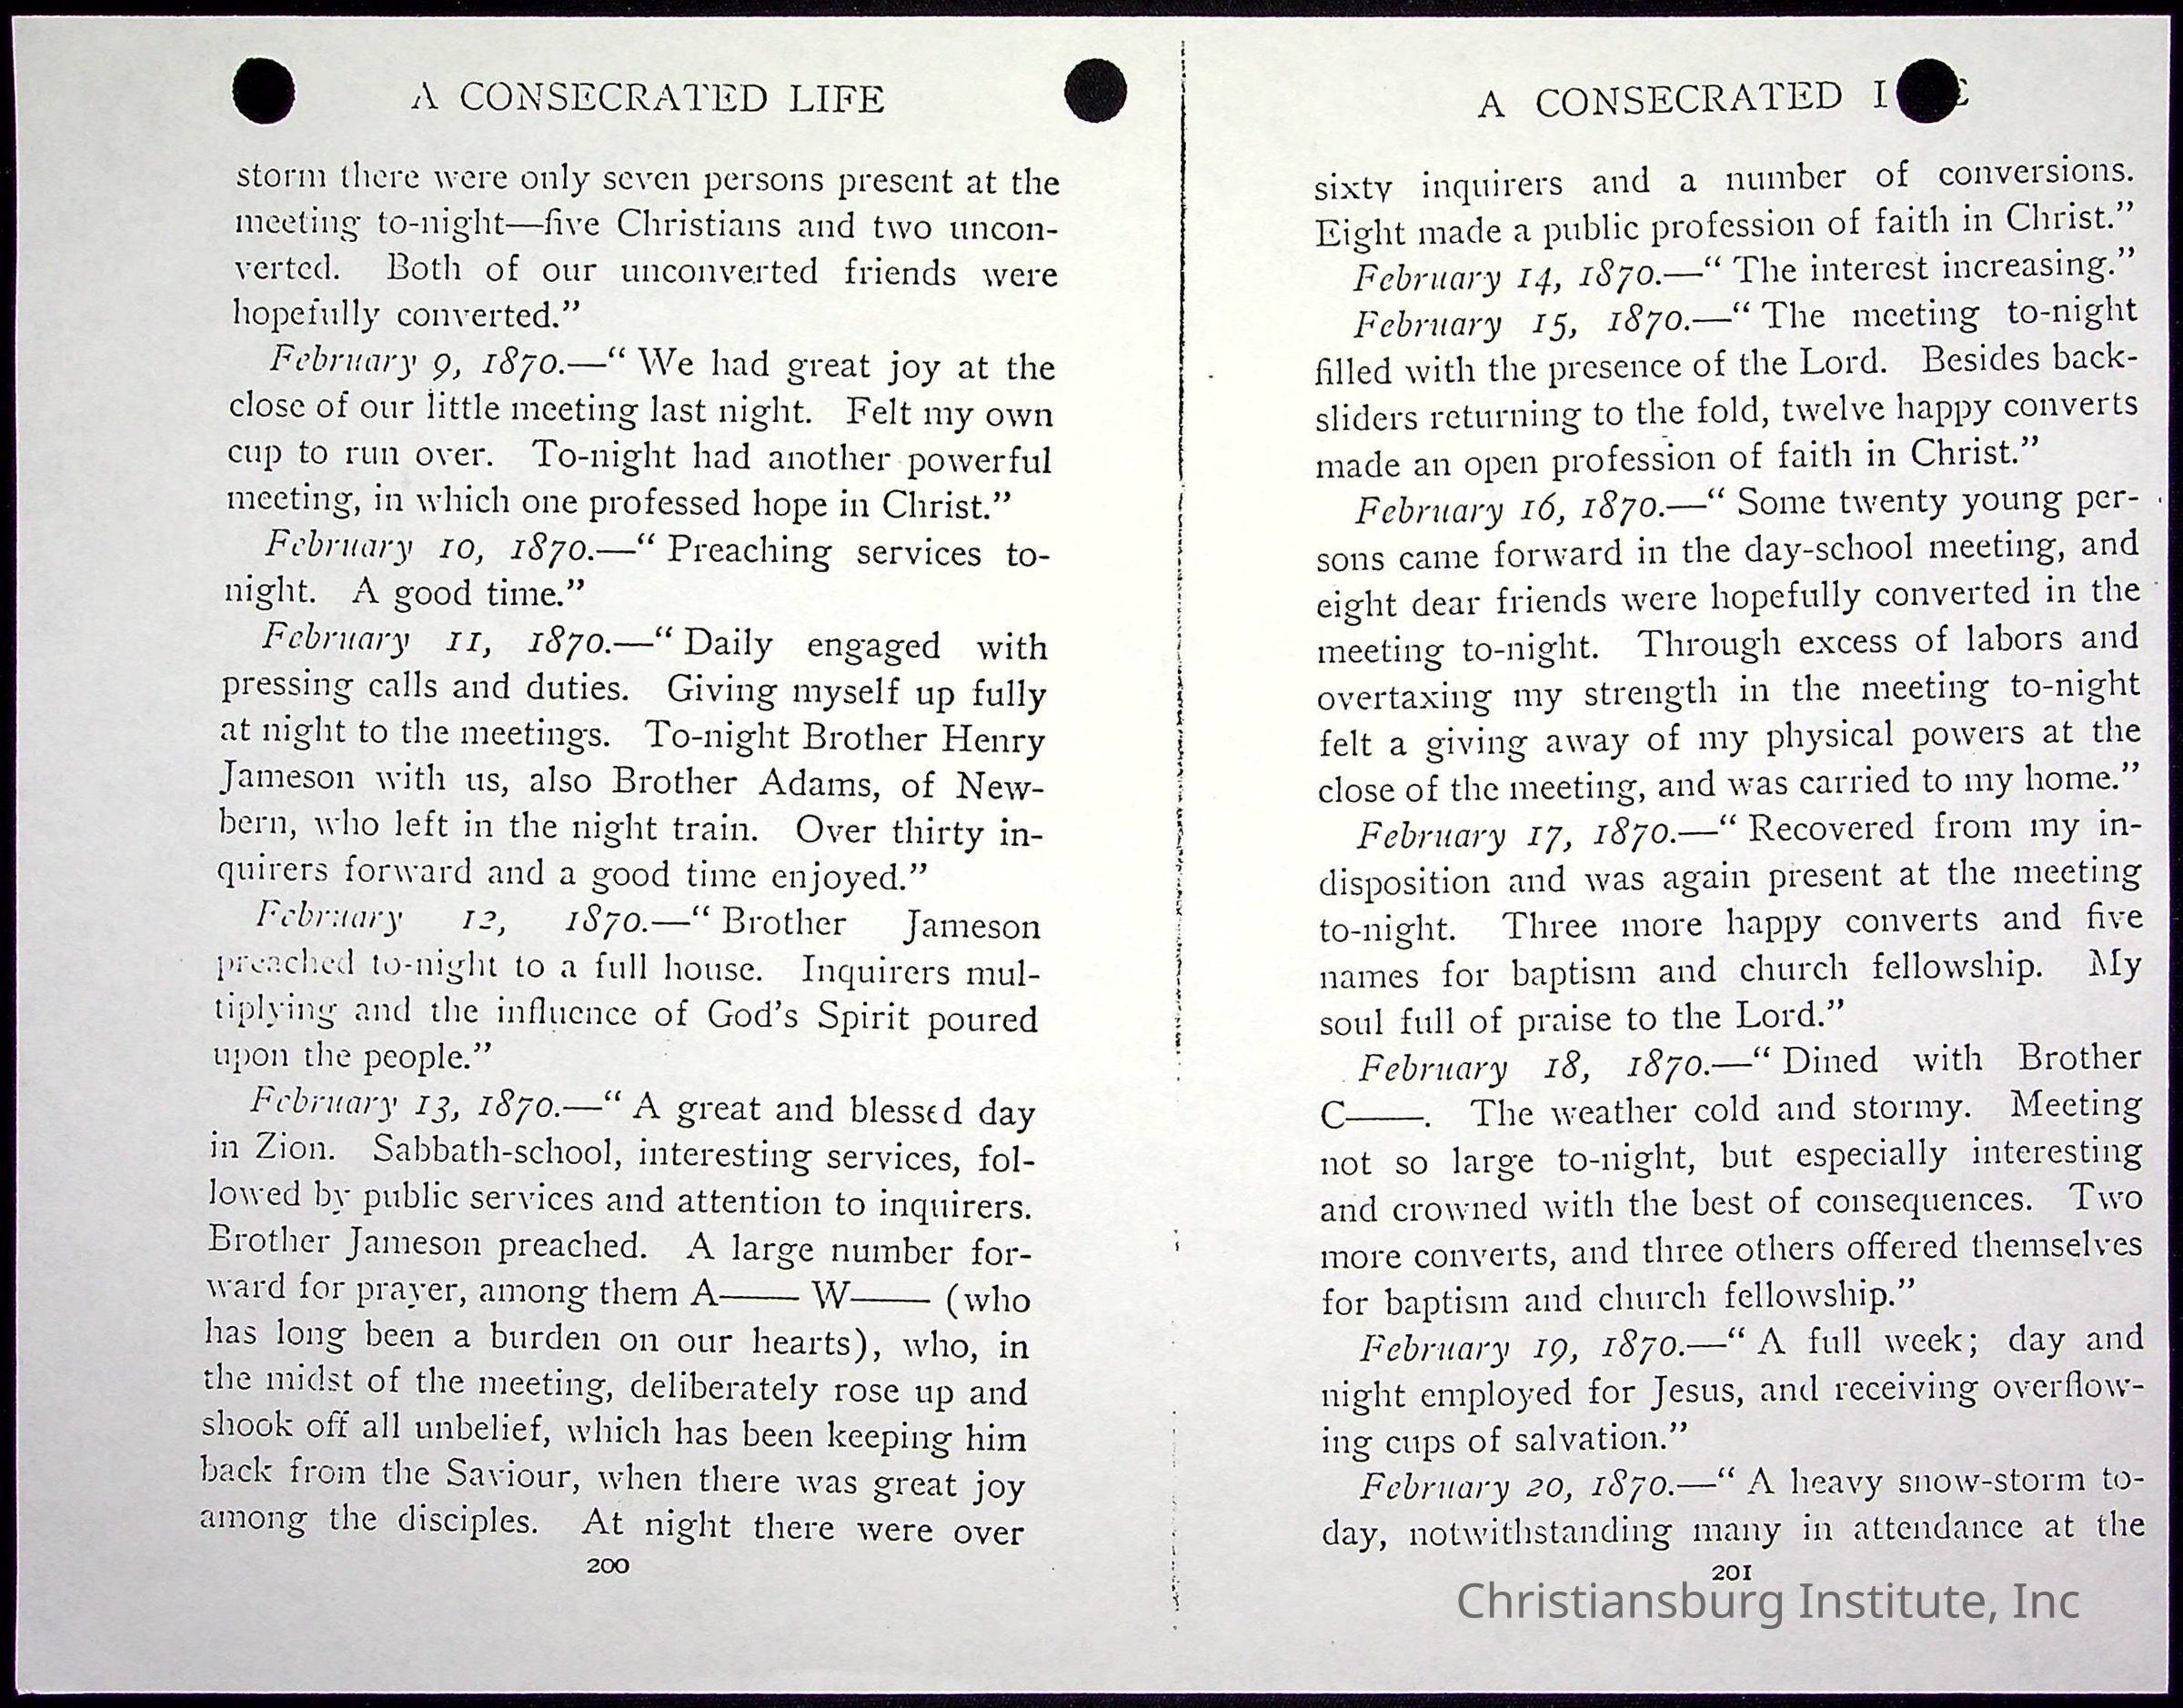 A CONSECRATED LIFE
storm there were only seven persons present at the
meeting to-night—five Christians and two uncon-
verted. Both of our unconverted friends were
hopefully converted.”
February 9, 1870.—“ We had great joy at the
close of our little meeting last night. Felt my own
cup to run over. To-night had another powerful
meeting, in which one professed hope in Christ.”
February 10, 1870.—“ Preaching services to-
night. A good time.”
February 11, 1870.—“ Daily engaged with
pressing calls and duties. Giving myself up fully
at night to the meetings. To-night Brother Henry
Jameson with us, also Brother Adams, of New-
bern, who left in the night train. Over thirty in-
quirers forward and a good time enjoyed.”
February 12, 1870.—“ Brother Jameson
preached to-night to a full house. Inquirers mul-
tiplying and the influence of God’s Spirit poured
upon the people.”
February 13, 1870.—“ A great and blessed day
in Zion. Sabbath-school, interesting services, fol-
lowed by public services and attention to inquirers.
Brother Jameson preached. A large number for-
ward for prayer, among them A—— W—— (who
has long been a burden on our hearts), who, in
the midst of the meeting, deliberately rose up and
shook off all unbelief, which has been keeping him
back from the Saviour, when there was great joy
among the disciples. At night there were over
200
A CONSECRATED
sixty inquirers and a number of conversions.
Eight made a public profession of faith in Christ.”
February 14, 1870.—“ The interest increasing.”
February 15, 1870.—“ The meeting to-night
filled with the presence of the Lord. Besides back-
sliders returning to the fold, twelve happy converts
made an open profession of faith in Christ.”
February 16, 1870.—“ Some twenty young per-
sons came forward in the day-school meeting, and
eight dear friends were hopefully converted in the
meeting to-night. Through excess of labors and
overtaxing my strength in the meeting to-night
felt a giving away of my physical powers at the
close of the meeting, and was carried to my home.”
February 17, 1870.—“ Recovered from my in-
disposition and was again present at the meeting
to-night. Three more happy converts and five
names for baptism and church fellowship. My
soul full of praise to the Lord.”
February 18, 1870.—“ Dined with Brother
C——. The weather cold and stormy. Meeting
not so large to-night, but especially interesting
and crowned with the best of consequences. Two
more converts, and three others offered themselves
for baptism and church fellowship.”
February 19, 1870.—“ A full week; day and
night employed for Jesus, and receiving overflow-
ing cups of salvation.”
February 20, 1870.—“ A heavy snow-storm to-
day, notwithstanding many in attendance at the
201
Christiansburg Institute, Inc